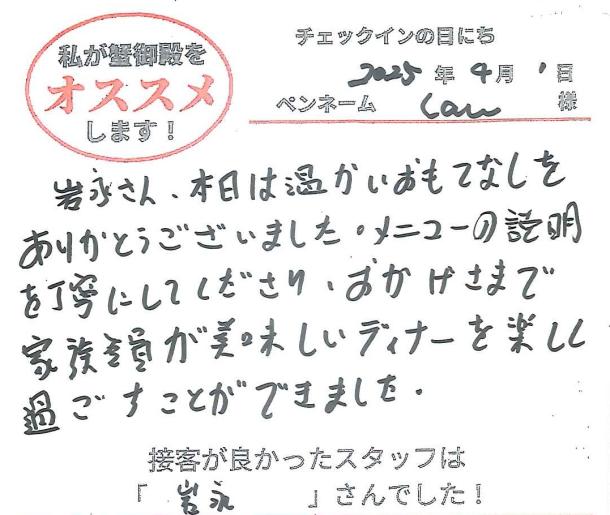 私が蟹御殿を
オススメ
します!
チェックインの日にち
2025年4月1日
ペンネーム Law 様
岩永さん、本日は温かいおもてなしを
ありがとうございました。メニューの説明
を丁寧にしてくださり、おかげさまで
家族全員が美味しいディナーを楽しく
過ごすことができました.
接客が良かったスタッフは
「 岩永 」さんでした!